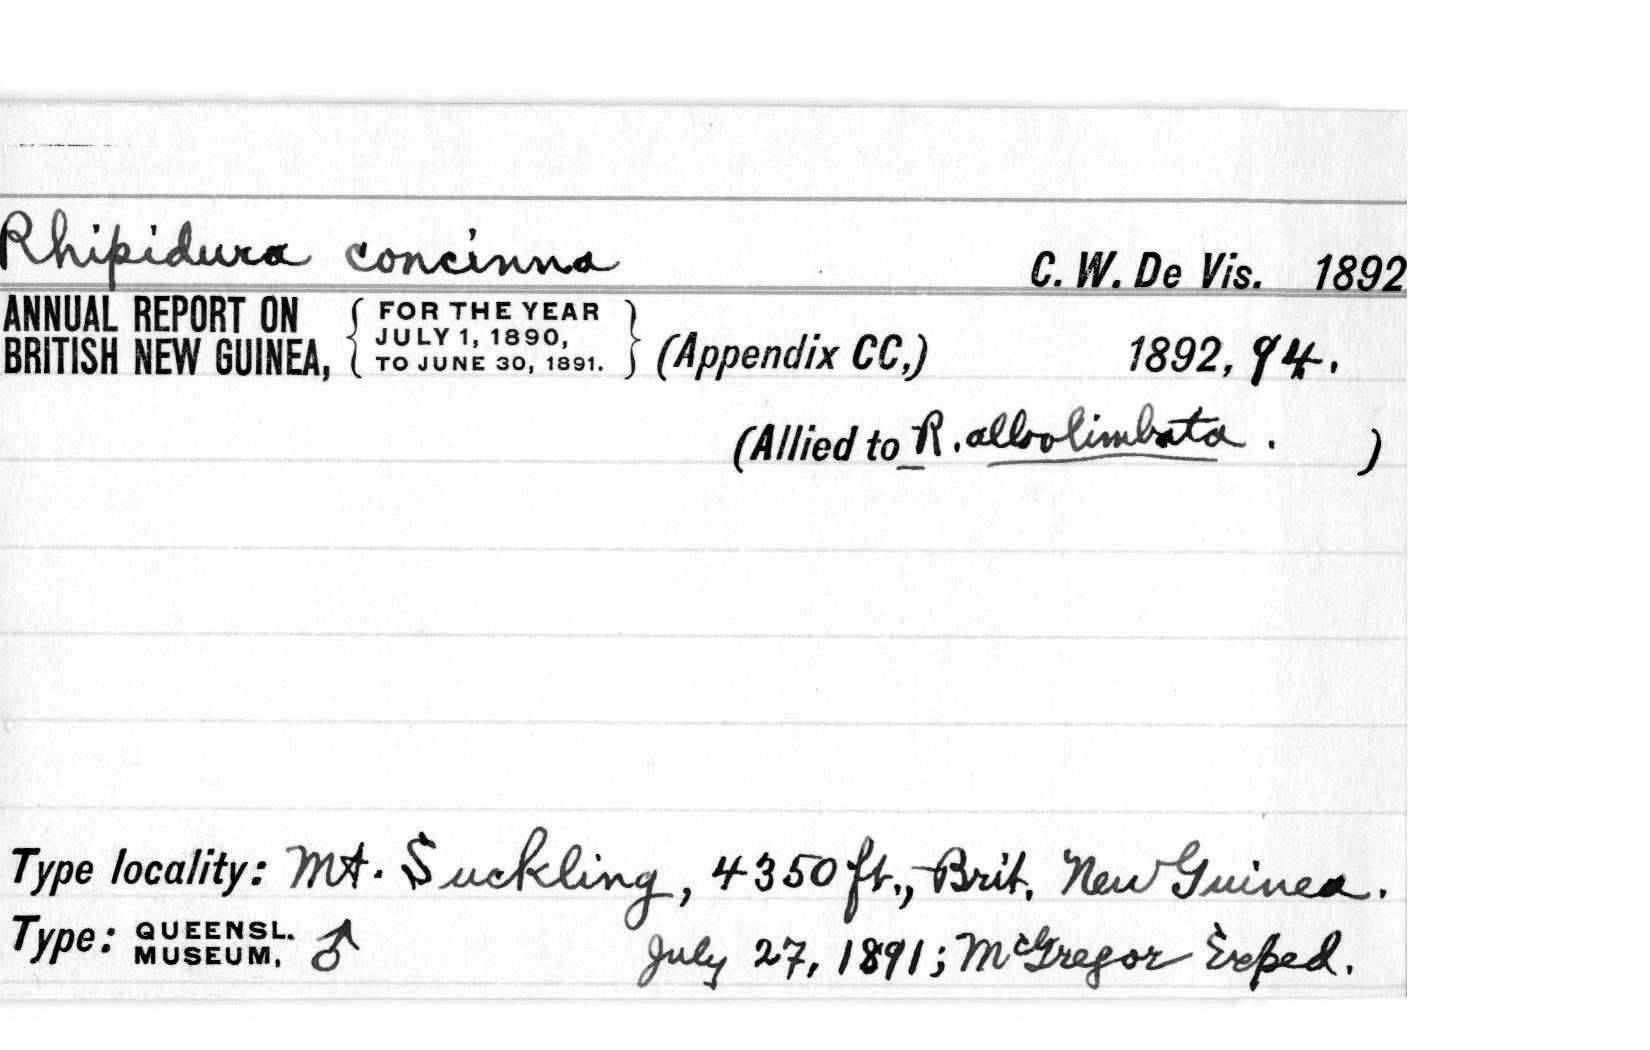 Rhipidura concinna C. W. De Vis. 1892
ANNUAL REPORT ON BRITISH NEW GUINEA, { FOR THE YEAR JULY 1, 1890, TO JUNE 30, 1891. } (Appendix CC,) 1892, 94.
(Allied to R. albolimbata. )
Type locality: Mt. Suckling, 4350 ft., Brit. New Guinea.
Type: QUEENSL. MUSEUM, ♂ July 27, 1891; McGregor Exped.